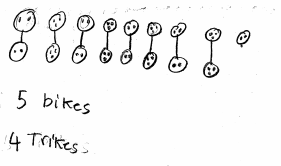 5 bikes
4 Trikes